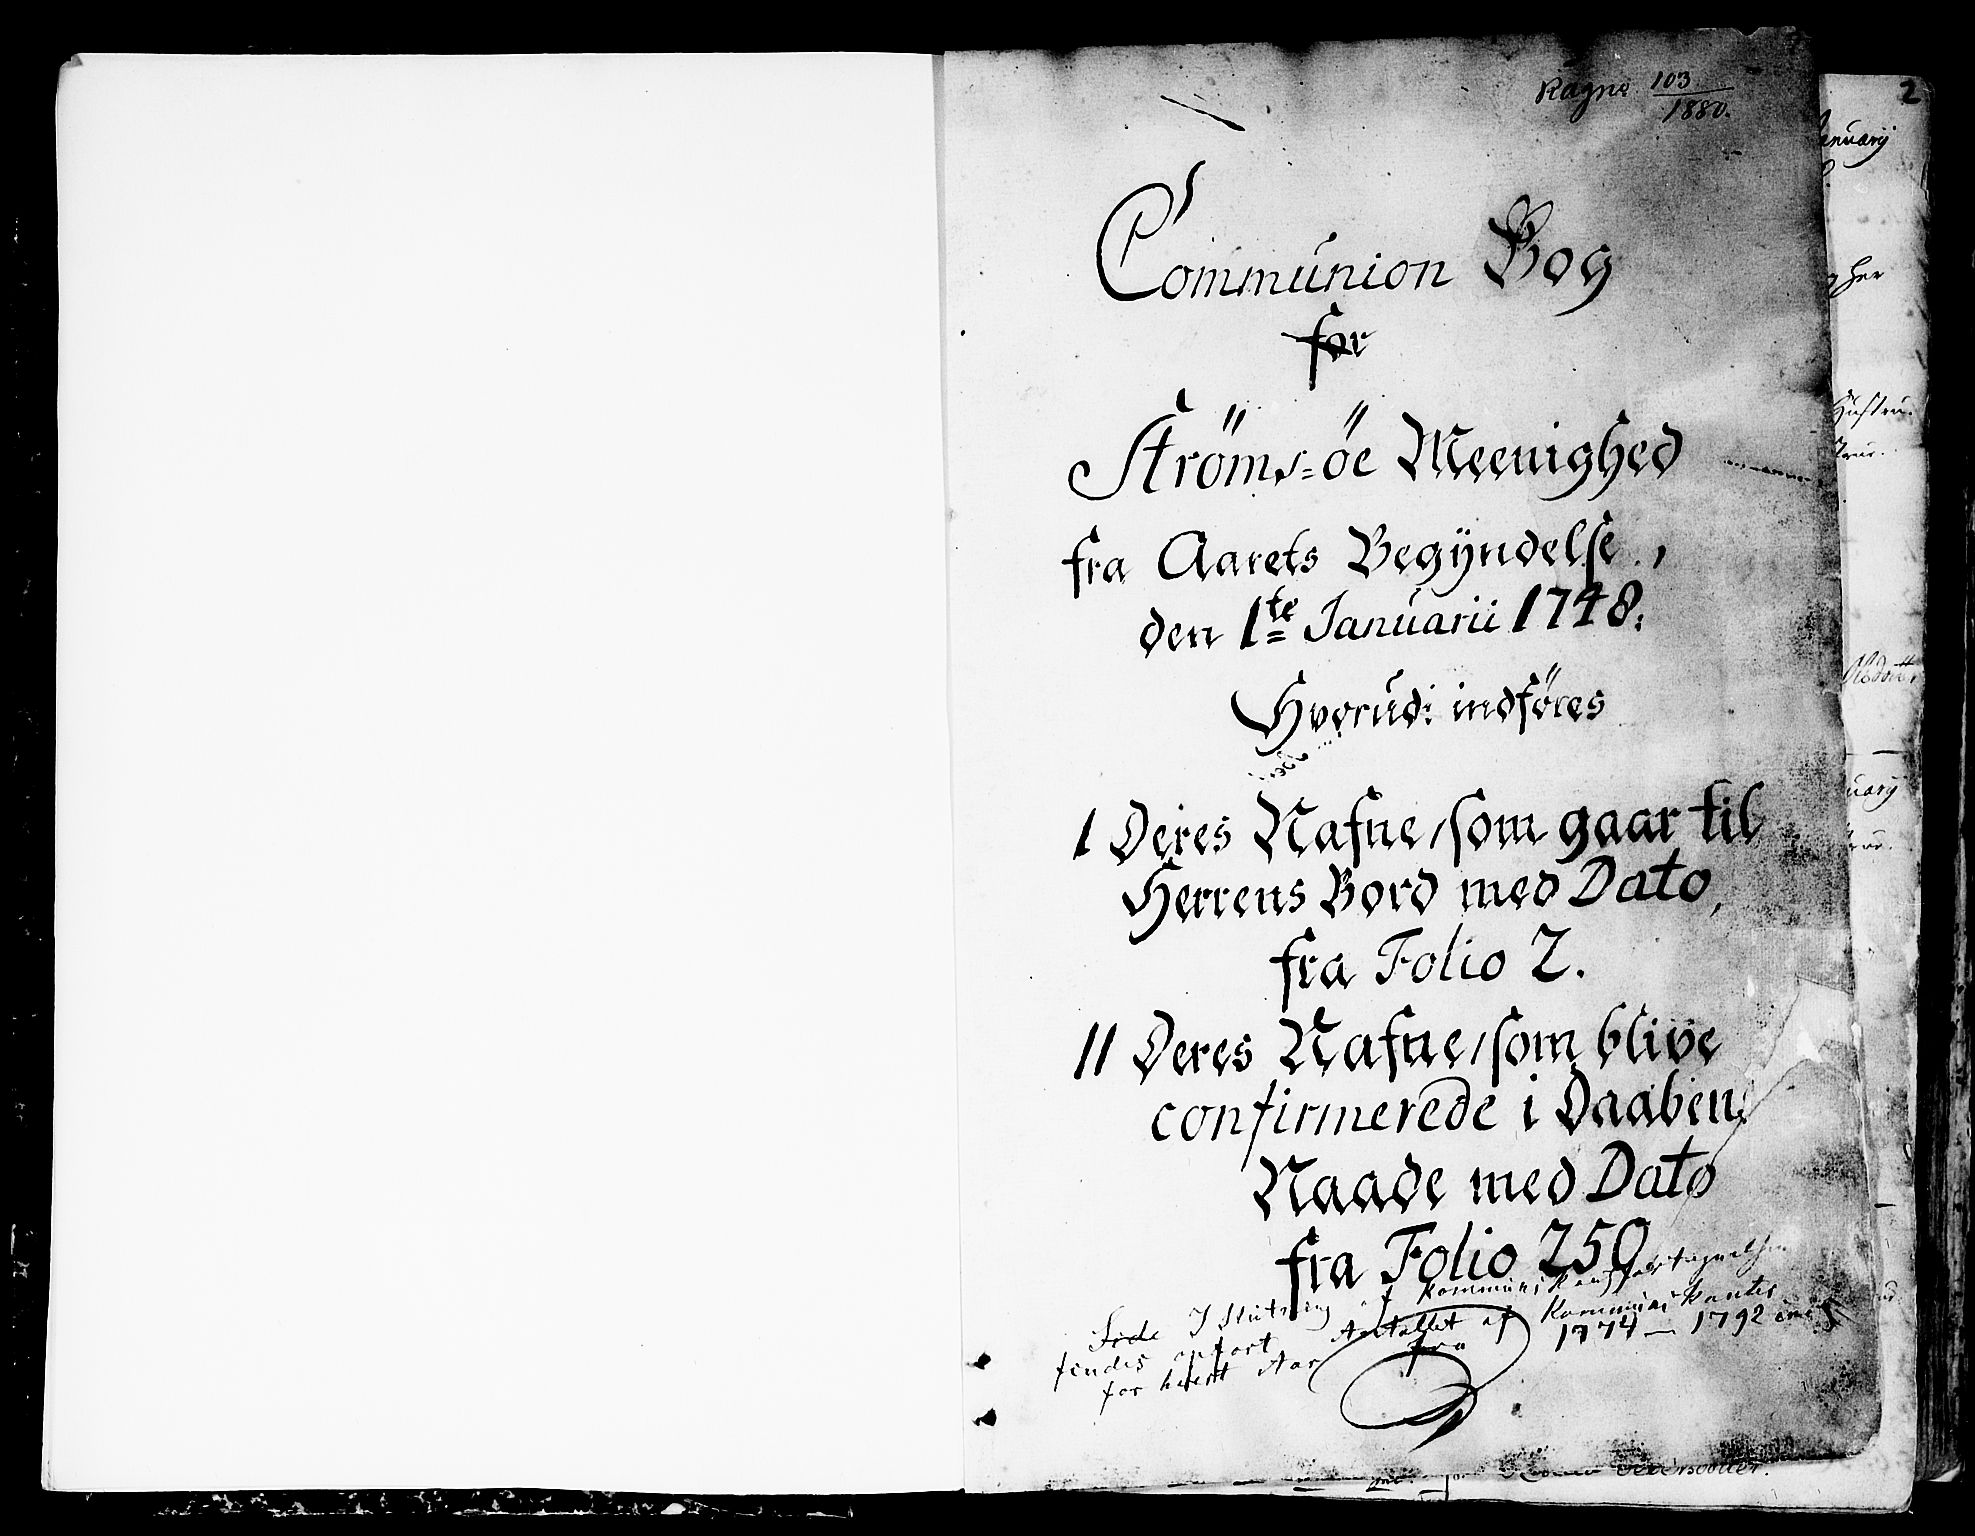 103
1880.
Communion Bog
for
Ströms-öe Meenighed
fra Aarets Begÿndelse,
den 1te Januarii 1748.
Hvorudi indföres
I Deres Nafne, som gaar til
Herrens Bord med Dato,
fra Folio 2.
II Deres Nafne, som blive
confirmerede i Daabens
Naade med Dato
fra Folio 250
I Slutning af
findes opfört Antallet af Kommunikanter
for hvert Aar fra 1774 – 1792
2
Januarij